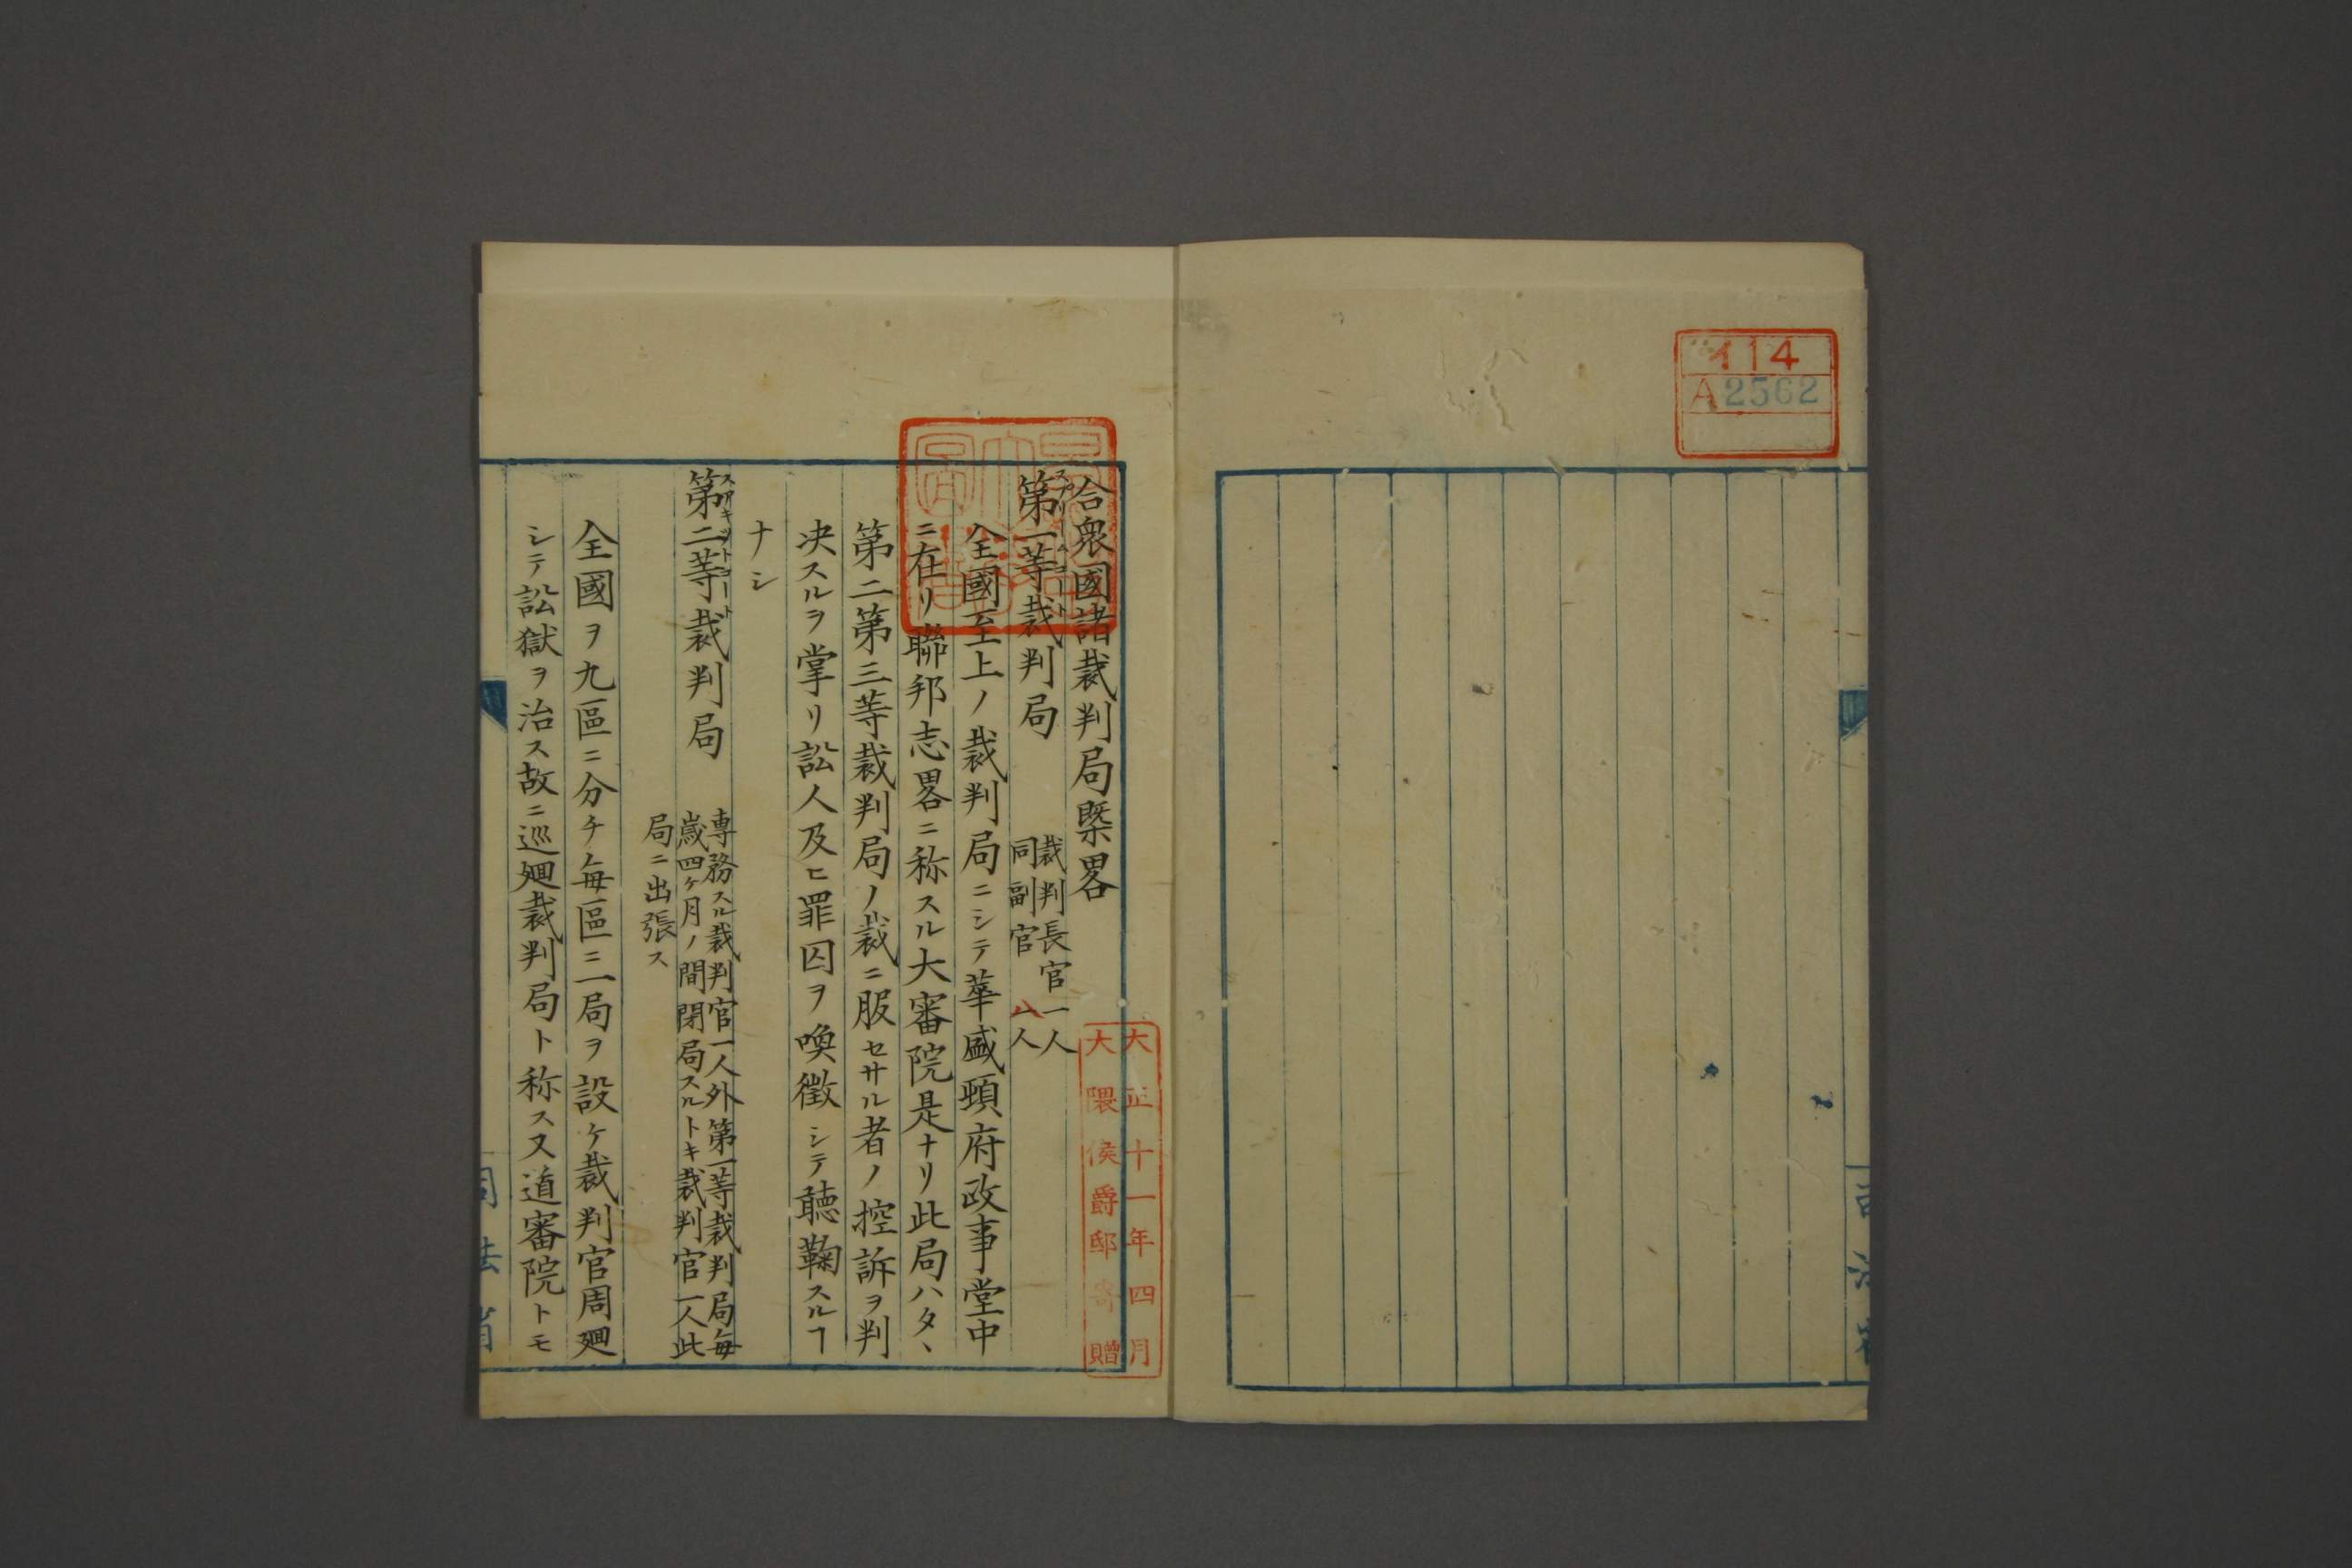 イ14
A2562
合衆國諸裁判局槩畧
第一等裁判局 裁判長官一人
同副官 八人
全國至上ノ裁判局ニシテ華盛頓府政事堂中
ニ在リ聯邦志畧ニ称スル大審院是ナリ此局ハタヽ
第二第三等裁判局ノ裁ニ服セサル者ノ控訴ヲ判
决スルヲ掌リ訟人及ヒ罪囚ヲ喚徴シテ聴鞠スルヿ
ナシ
第二等裁判局 専務スル裁判官一人外第一等裁判局毎
歳四ケ月ノ間閉局スルトキ裁判官一人此
局ニ出張ス
全國ヲ九區ニ分チ毎區ニ一局ヲ設ケ裁判官周廻
シテ訟獄ヲ治ス故ニ巡廻裁判局ト称ス又道審院トモ
大正十一年四月
大隈侯爵邸寄贈
司法省